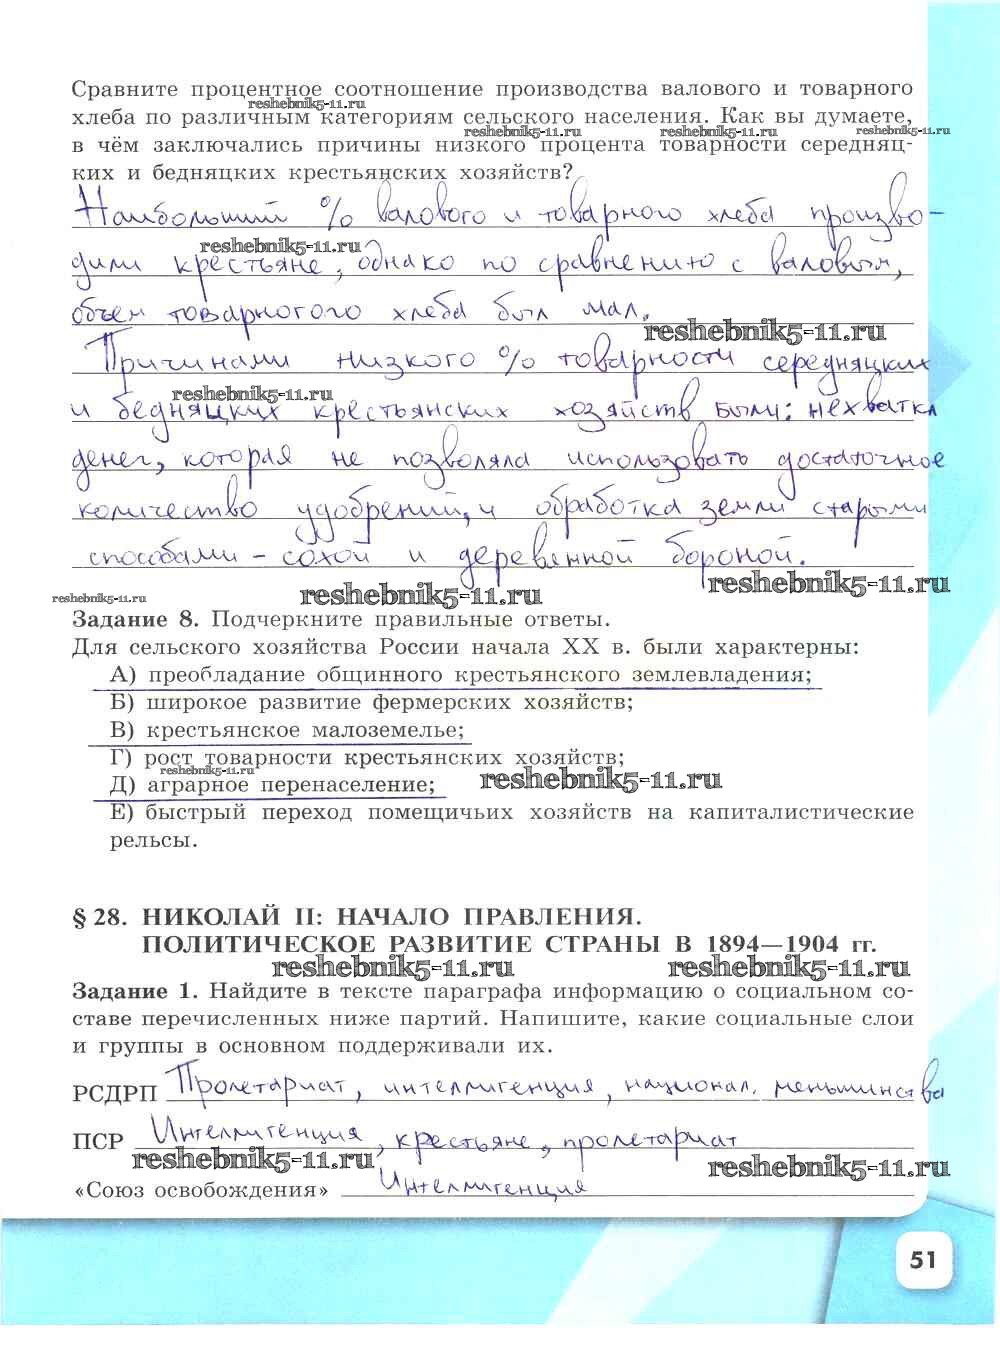 Сравните процентное соотношение производства валового и товарного
reshebnik5-11.ru
хлеба по различным категориям сельского населения. Как вы думаете,
reshebnik5-11.ru reshebnik5-11.ru reshebnik5-11.ru
в чём заключались причины низкого процента товарности середняц-
ких и бедняцких крестьянских хозяйств?
Наибольший % валового и товарного хлеба произво-
reshebnik5-11.ru
дили крестьяне, однако по сравнению с валовым,
объем товарного хлеба был мал.
reshebnik5-11.ru
Причинами низкого % товарности середняцких
reshebnik5-11.ru
и бедняцких крестьянских хозяйств были: нехватка
денег, которая не позволяла использовать достаточное
количество удобрений, и обработка земли старыми
способами - сохой и деревенной бороной.
reshebnik5-11.ru reshebnik5-11.ru reshebnik5-11.ru
Задание 8. Подчеркните правильные ответы.
Для сельского хозяйства России начала XX в. были характерны:
А) преобладание общинного крестьянского землевладения;
Б) широкое развитие фермерских хозяйств;
В) крестьянское малоземелье;
Г) рост товарности крестьянских хозяйств;
reshebnik5-11.ru reshebnik5-11.ru
Д) аграрное перенаселение;
Е) быстрый переход помещичьих хозяйств на капиталистические
рельсы.
§ 28. НИКОЛАЙ II: НАЧАЛО ПРАВЛЕНИЯ.
ПОЛИТИЧЕСКОЕ РАЗВИТИЕ СТРАНЫ В 1894—1904 гг.
reshebnik5-11.ru reshebnik5-11.ru
Задание 1. Найдите в тексте параграфа информацию о социальном со-
ставе перечисленных ниже партий. Напишите, какие социальные слои
и группы в основном поддерживали их.
РСДРП Пролетариат, интеллигенция, национал. меньшинства
ПСР Интеллигенция, крестьяне, пролетариат
reshebnik5-11.ru reshebnik5-11.ru
«Союз освобождения» Интеллигенция
51